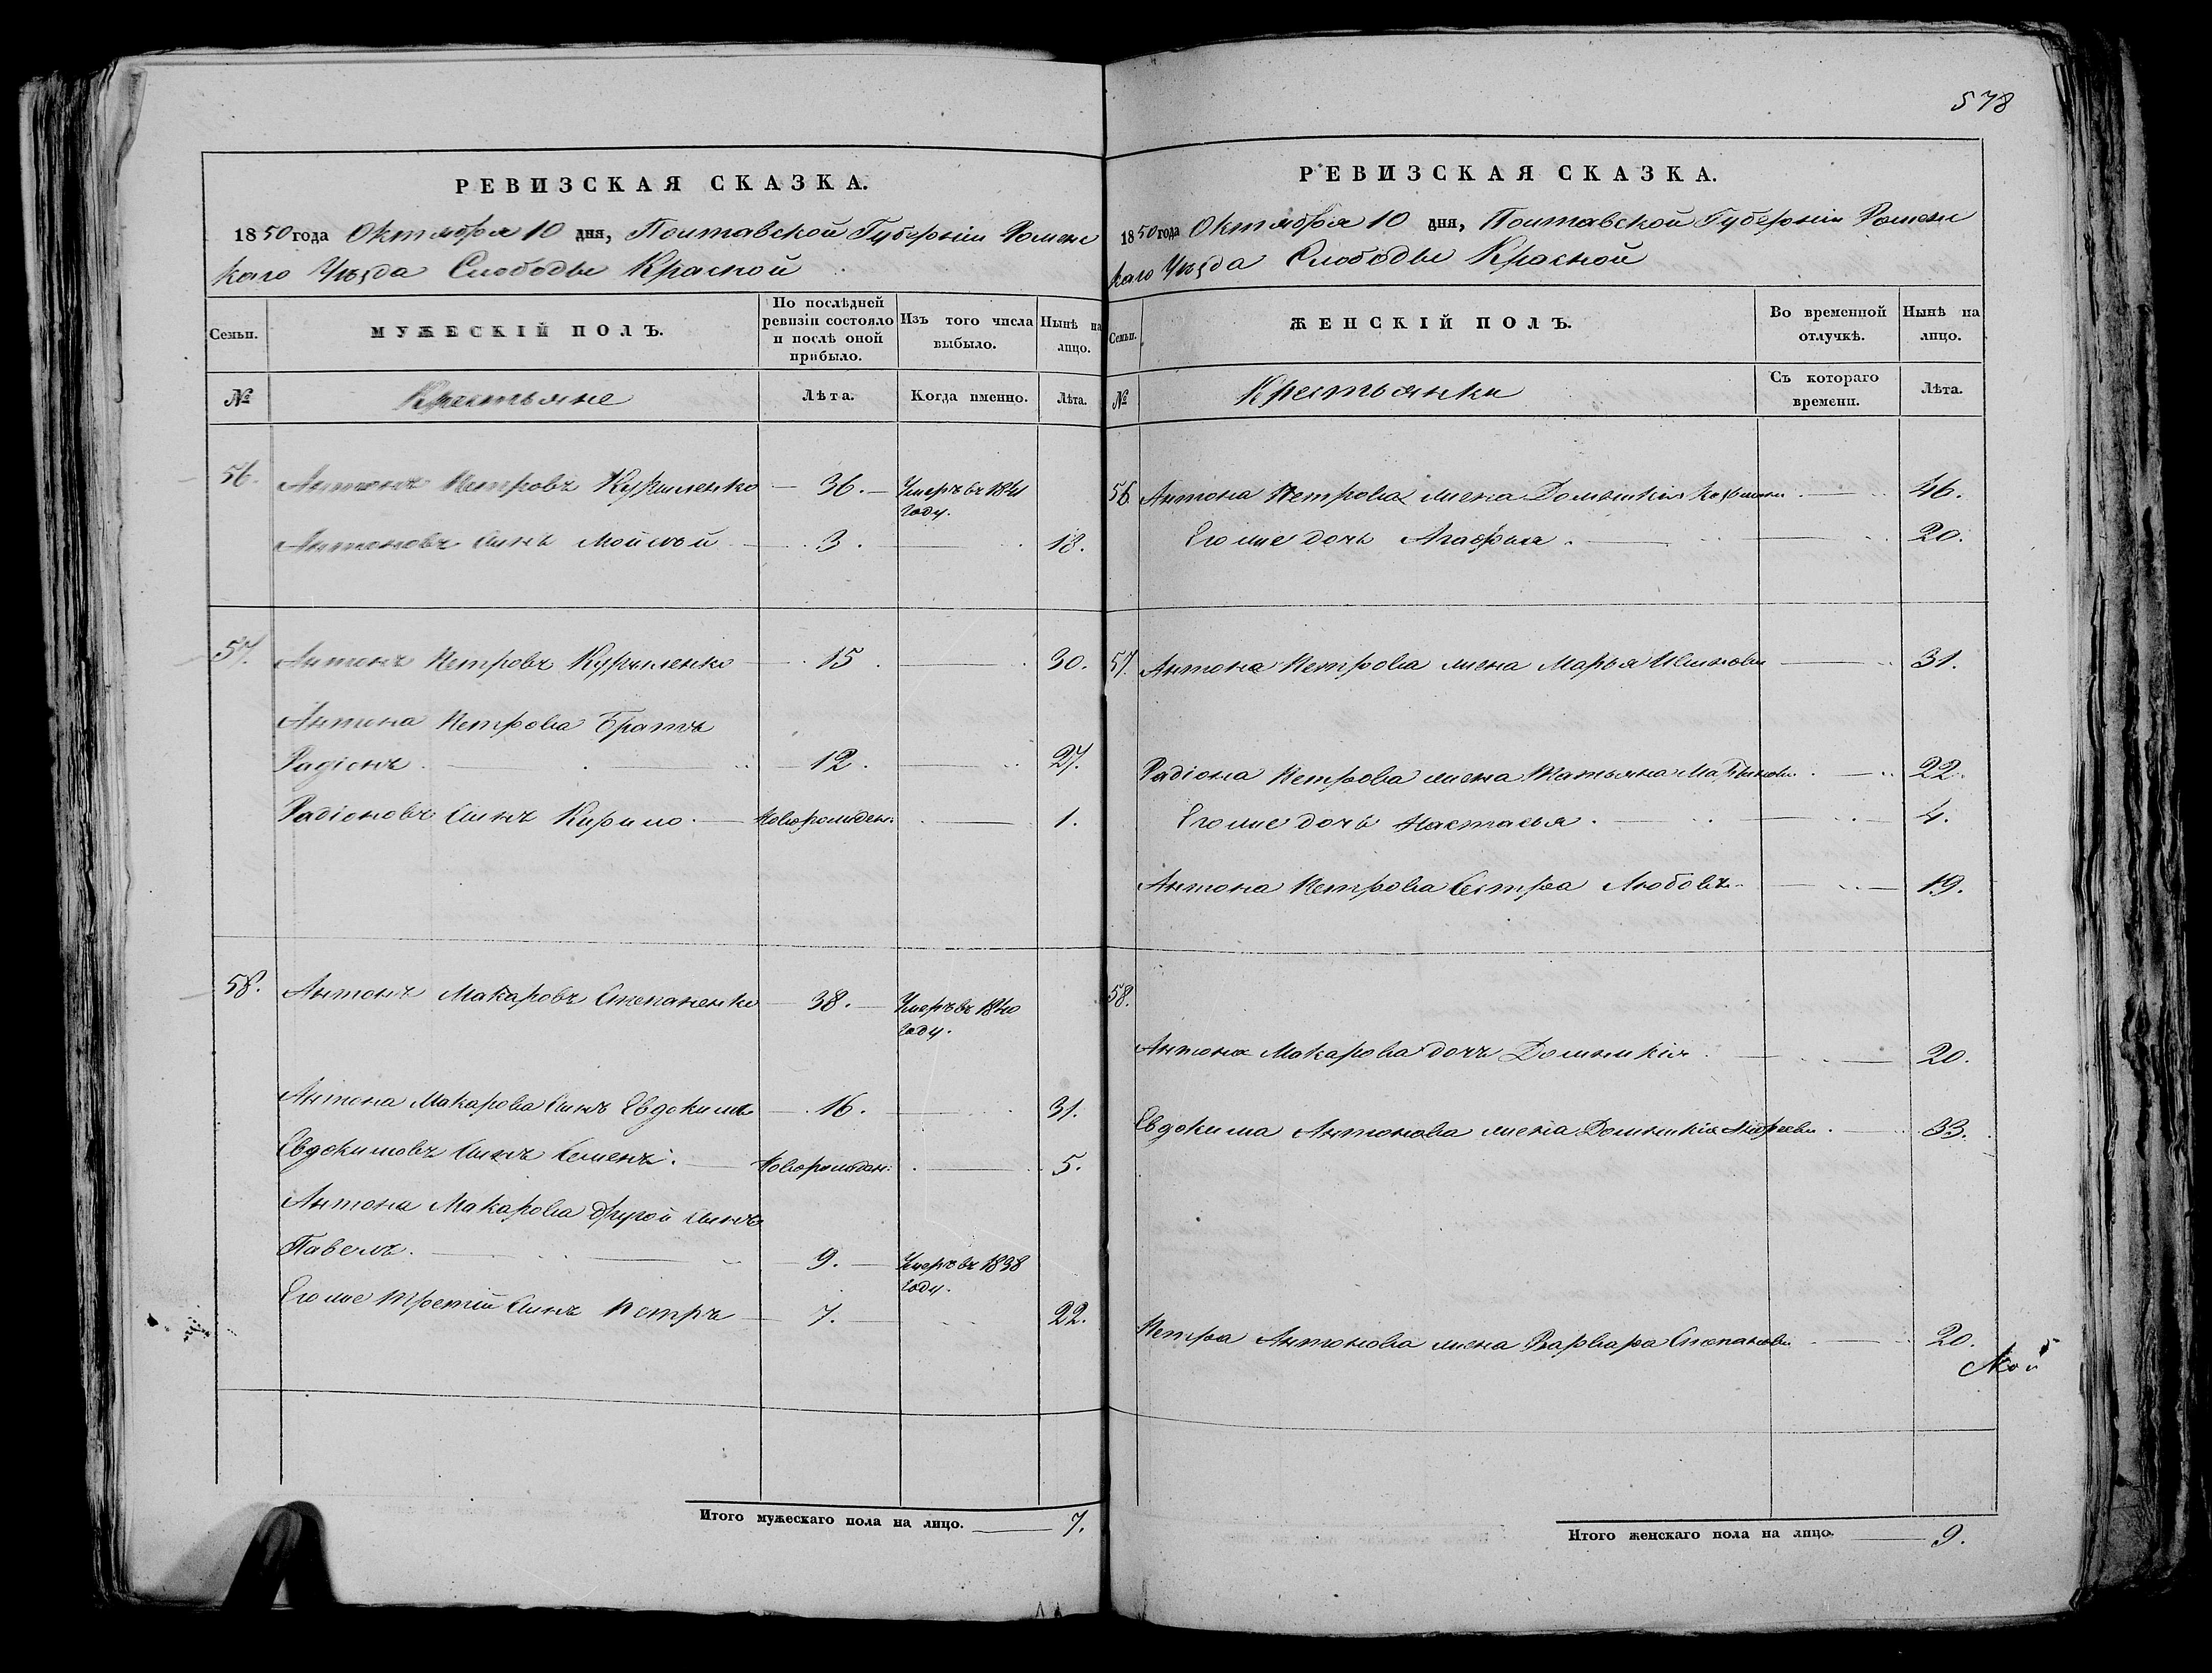 578
РЕВИЗСКАЯ СКАЗКА.
1850 года Октября 10 дня, Полтавской Губерніи Роменс
каго Уѣзда Слободы Красной
Семьи.
МУЖЕСКІЙ ПОЛЪ.
По послѣдней ревизіи состояло и послѣ оной прибыло.
Изъ того числа выбыло.
Нынѣ на лицо.
№
Крестьяне
Лѣта.
Когда именно.
Лѣта.
56. Антонъ Петровъ Курыленко — 36. — Умеръ въ 1841
году.
Антоновъ сынъ Мойсей — 3. — 18.
57. Антонъ Петровъ Курыленко — 15. — 30.
Антона Петрова Братъ
Радіонъ. — 12. — 27.
Радіоновъ сынъ Кирило. — новорожден: — 1.
58. Антонъ Макаровъ Степаненко — 38. — Умеръ въ 1840
году.
Антона Макарова сынъ Евдокимъ — 16. — 31.
Евдокимовъ сынъ Семенъ. — новорожден: — 5.
Антона Макарова другой сынъ
Павелъ. — 9. — Умеръ въ 1838
году.
Его же третій сынъ Петръ — 7. — 22.
Итого мужескаго пола на лицо. — 7.
РЕВИЗСКАЯ СКАЗКА.
1850 года Октября 10 дня, Полтавской Губерніи Роменс
каго Уѣзда Слободы Красной
Семьи.
ЖЕНСКІЙ ПОЛЪ.
Во временной отлучкѣ.
Нынѣ на лицо.
№
Крестьянки
Съ котораго времени.
Лѣта.
56. Антона Петрова жена Домникія — 46.
Его же дочь Агафья. — 20.
57. Антона Петрова жена Марья — 31.
Радіона Петрова жена Татьяна — 22.
Его же дочь Настасья. — 4.
Антона Петрова сестра Любовь. — 19.
58.
Антона Макарова дочь Домникія. — 20.
Евдокима Антонова жена Домникія Андреева. — 33.
Петра Антонова жена Варвара Степанова — 20.
Итого женскаго пола на лицо. — 9.